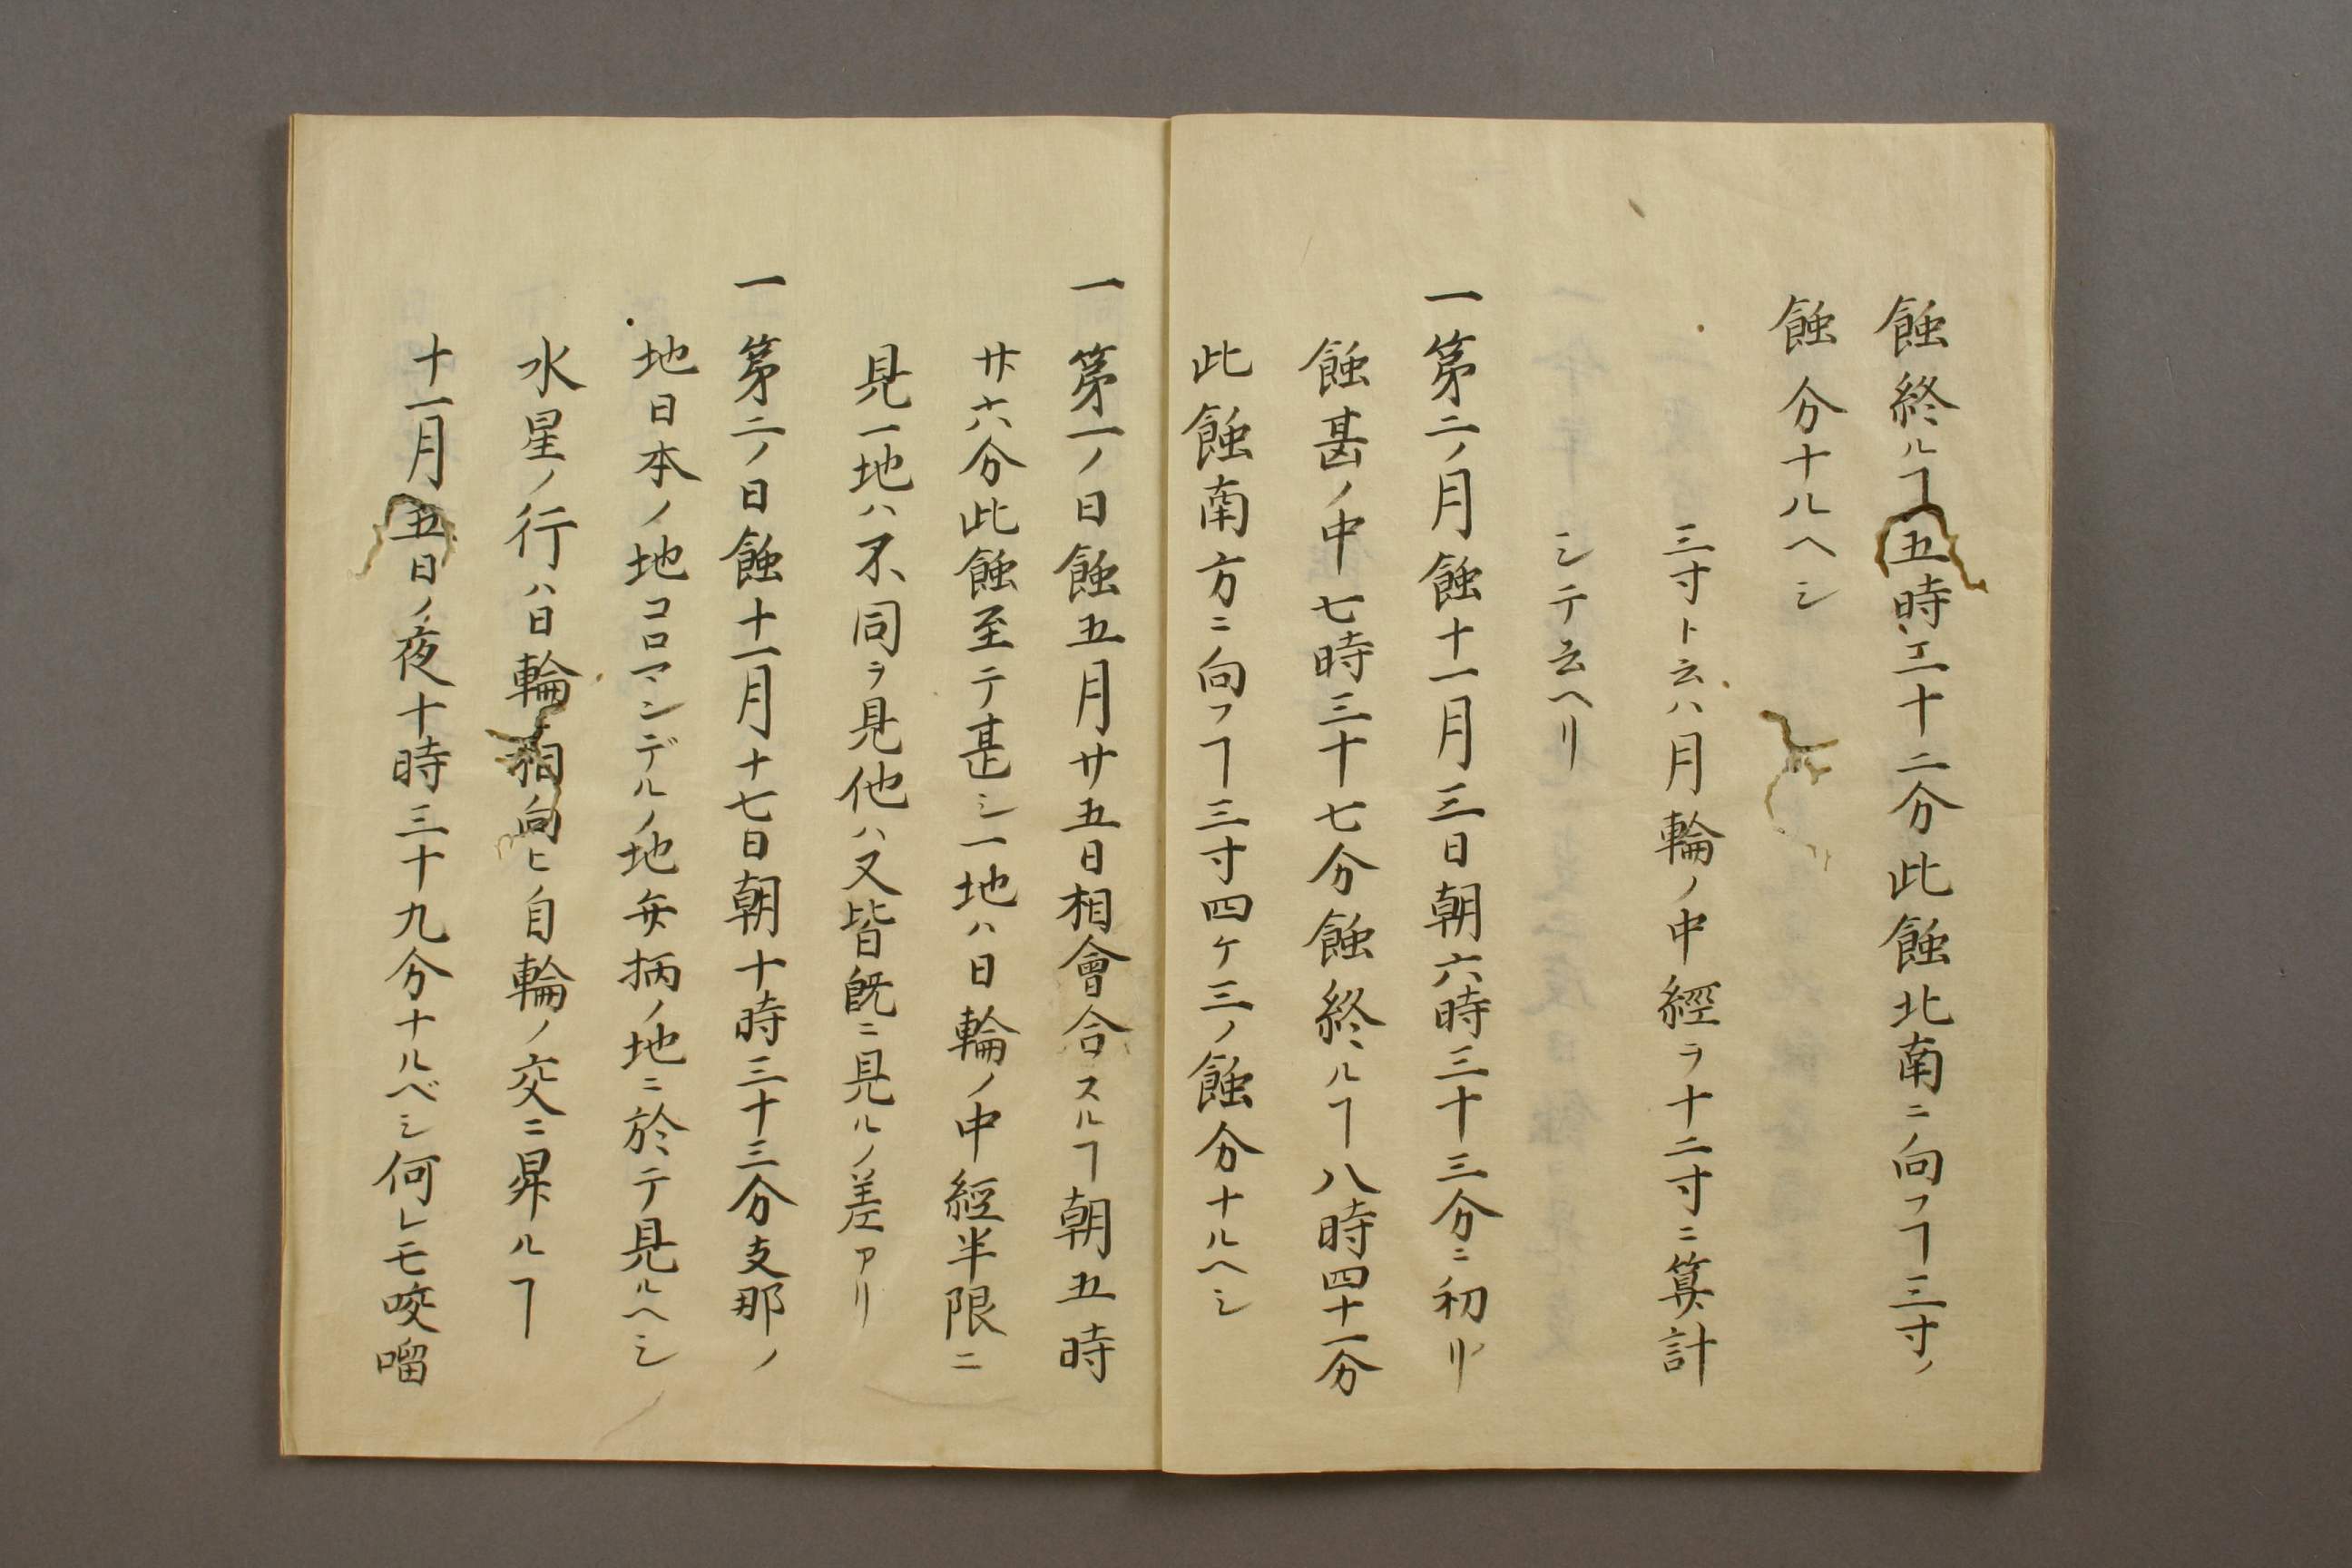 蝕終ルヿ五時ヱ十二分此蝕北南ニ向フヿ三寸ノ
蝕分ナルヘシ
三寸ト云ハ月輪ノ中經ヲ十二寸ニ算計
シテ云ヘリ
一第二ノ月蝕十一月三日朝六時三十三分ニ初リ
蝕甚ノ中七時三十七分蝕終ルヿ八時四十一分
此蝕南方ニ向フヿ三寸四ケ三ノ蝕分ナルヘシ
一第一ノ日蝕五月廿五日相會合スルヿ朝五時
廿六分此蝕至テ甚シ一地ハ日輪ノ中經半限ニ
見一地ハ不同ヲ見他ハ又皆既ニ見ルノ差アリ
一第二ノ日蝕十一月十七日朝十時三十三分支那ノ
地日本ノ地コロマンデルノ地弁柄ノ地ニ於テ見ルヘシ
水星ノ行ハ日輪相向ヒ自輪ノ交ニ昇ルヿ
十一月五日ノ夜十時三十九分ナルベシ何レモ咬𠺕